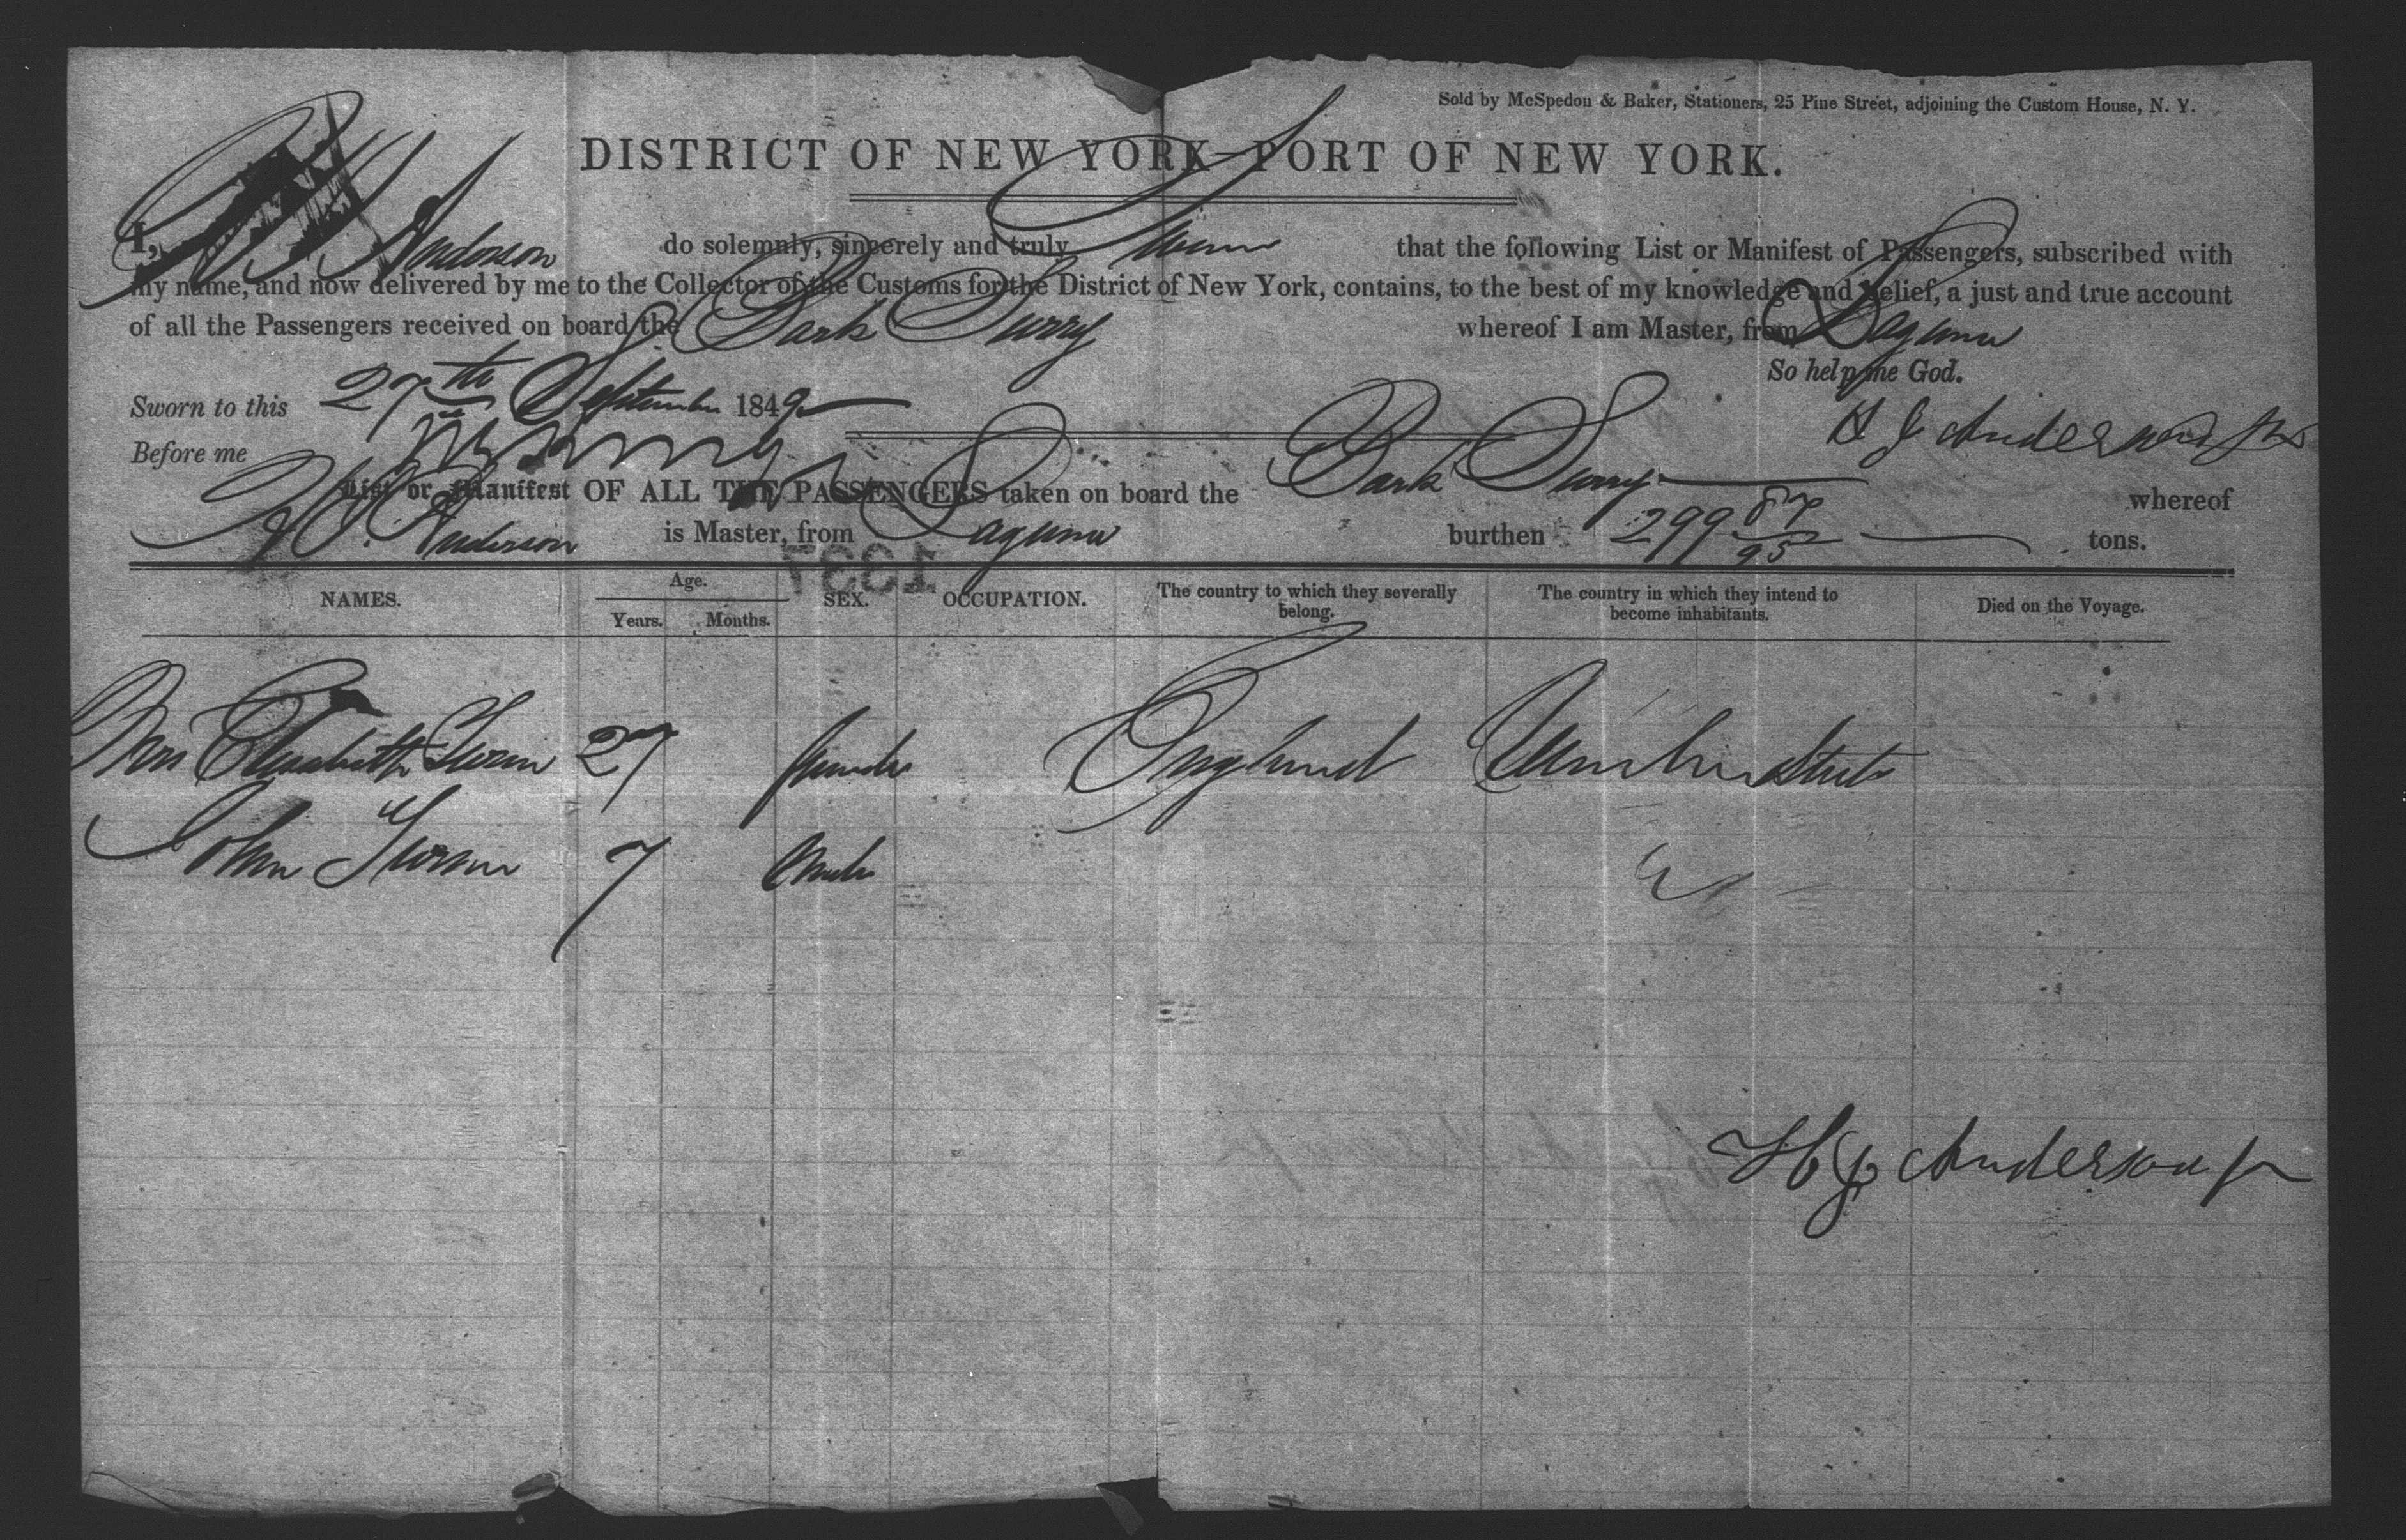 Sold by McSpedon & Baker, Stationers, 25 Pine Street, adjoining the Custom House, N. Y.
DISTRICT OF NEW YORK—PORT OF NEW YORK.
I, H J Anderson do solemnly, sincerely and truly Swear that the following List or Manifest of Passengers, subscribed with
my name, and now delivered by me to the Collector of the Customs for the District of New York, contains, to the best of my knowledge and belief, a just and true account
of all the Passengers received on board the Bark Surry whereof I am Master, from Laguna
So help me God.
Sworn to this 27th September 1849
H J Anderson Jr
Before me
List or Manifest OF ALL THE PASSENGERS taken on board the Bark Surry whereof
H J. Anderson is Master, from Laguna burthen 299 87/95 tons.
NAMES. Age. Years. Months. SEX. OCCUPATION. The country to which they severally belong. The country in which they intend to become inhabitants. Died on the Voyage.
Mrs Elizabeth 27 female England United States
John 7 male
H J Anderson Jr